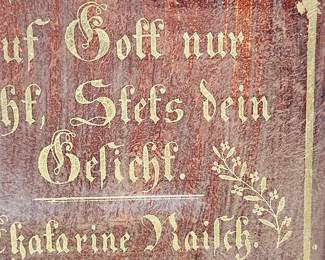 uf Gott nur
ht, Stets dein
Geſicht.
Chatarine Naiſch.